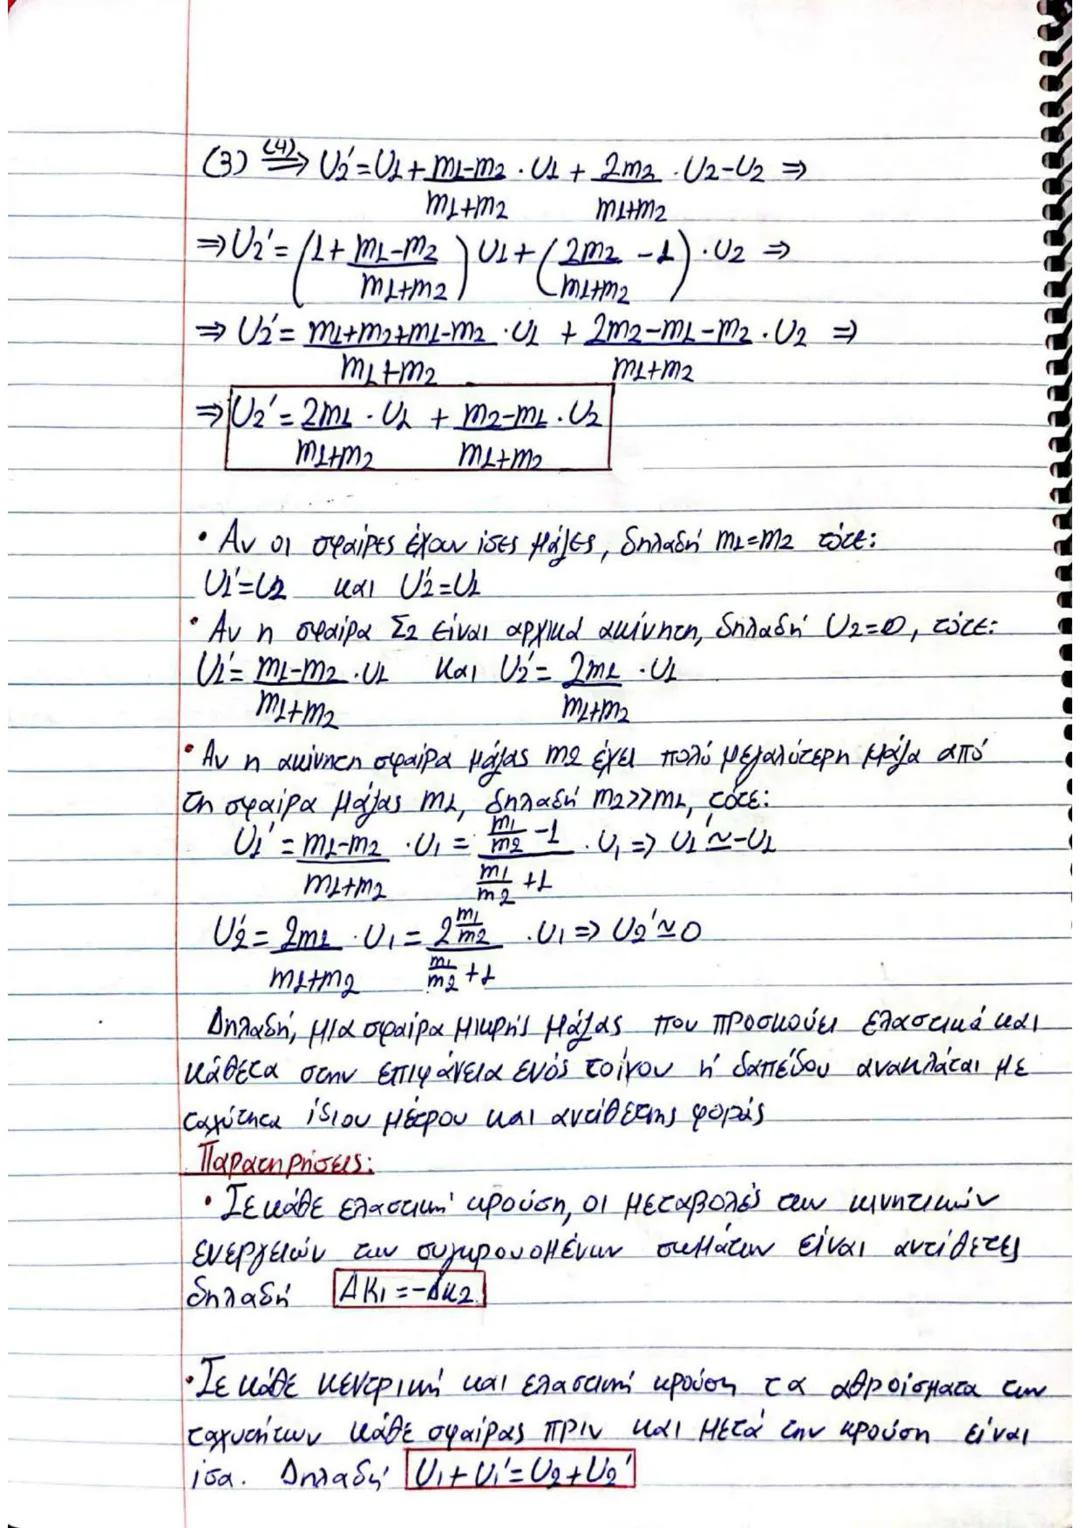 (3) (4)⟹ U2'=U1+ (m1-m2)/(m1+m2) · U1 + (2m2)/(m1+m2) · U2-U2 ⇒
⇒ U2'= (1+ (m1-m2)/(m1+m2)) U1+ ((2m2)/(m1+m2) -1) · U2 ⇒
⇒ U2'= (m1+m2+m1-m2)/(m1+m2) · U1 + (2m2-m1-m2)/(m1+m2) · U2 ⇒
⇒ U2'= (2m1)/(m1+m2) · U1 + (m2-m1)/(m1+m2) · U2
• Αν οι σφαίρες έχουν ίσες μάζες, δηλαδή m1=m2 τότε:
U1'=U2 και U2'=U1
• Αν η σφαίρα Σ2 είναι αρχικά ακίνητη, δηλαδή U2=0, τότε:
U1'= (m1-m2)/(m1+m2) · U1 και U2'= (2m1)/(m1+m2) · U1
• Αν η ακίνητη σφαίρα μάζας m2 έχει πολύ μεγαλύτερη μάζα από
τη σφαίρα μάζας m1, δηλαδή m2>>m1, τότε:
U1'= (m1-m2)/(m1+m2) · U1 = (m1/m2 -1)/(m1/m2 +1) · U1 ⇒ U1'≃-U1
U2'= (2m1)/(m1+m2) · U1 = (2 m1/m2)/(m1/m2 +1) · U1 ⇒ U2'≃0
Δηλαδή, μια σφαίρα μικρής μάζας που προσκούει ελαστικά και
κάθετα στην επιφάνεια ενός τοίχου ή δαπέδου ανακλάται με
ταχύτητα ίδιου μέτρου και αντίθετης φοράς
Παρατηρήσεις:
• Σε κάθε ελαστική κρούση, οι μεταβολές των κινητικών
ενεργειών των συγκρουομένων σωμάτων είναι αντίθετες
δηλαδή ΔΚ1=-ΔΚ2
• Σε κάθε κεντρική και ελαστική κρούση τα αθροίσματα των
ταχυτήτων κάθε σφαίρας πριν και μετά την κρούση είναι
ίσα. Δηλαδή U1+U1'=U2+U2'